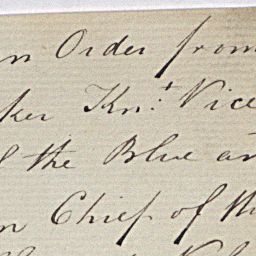 an Order from
ker Kn:t Vice
of the Blue an
n Chief of th